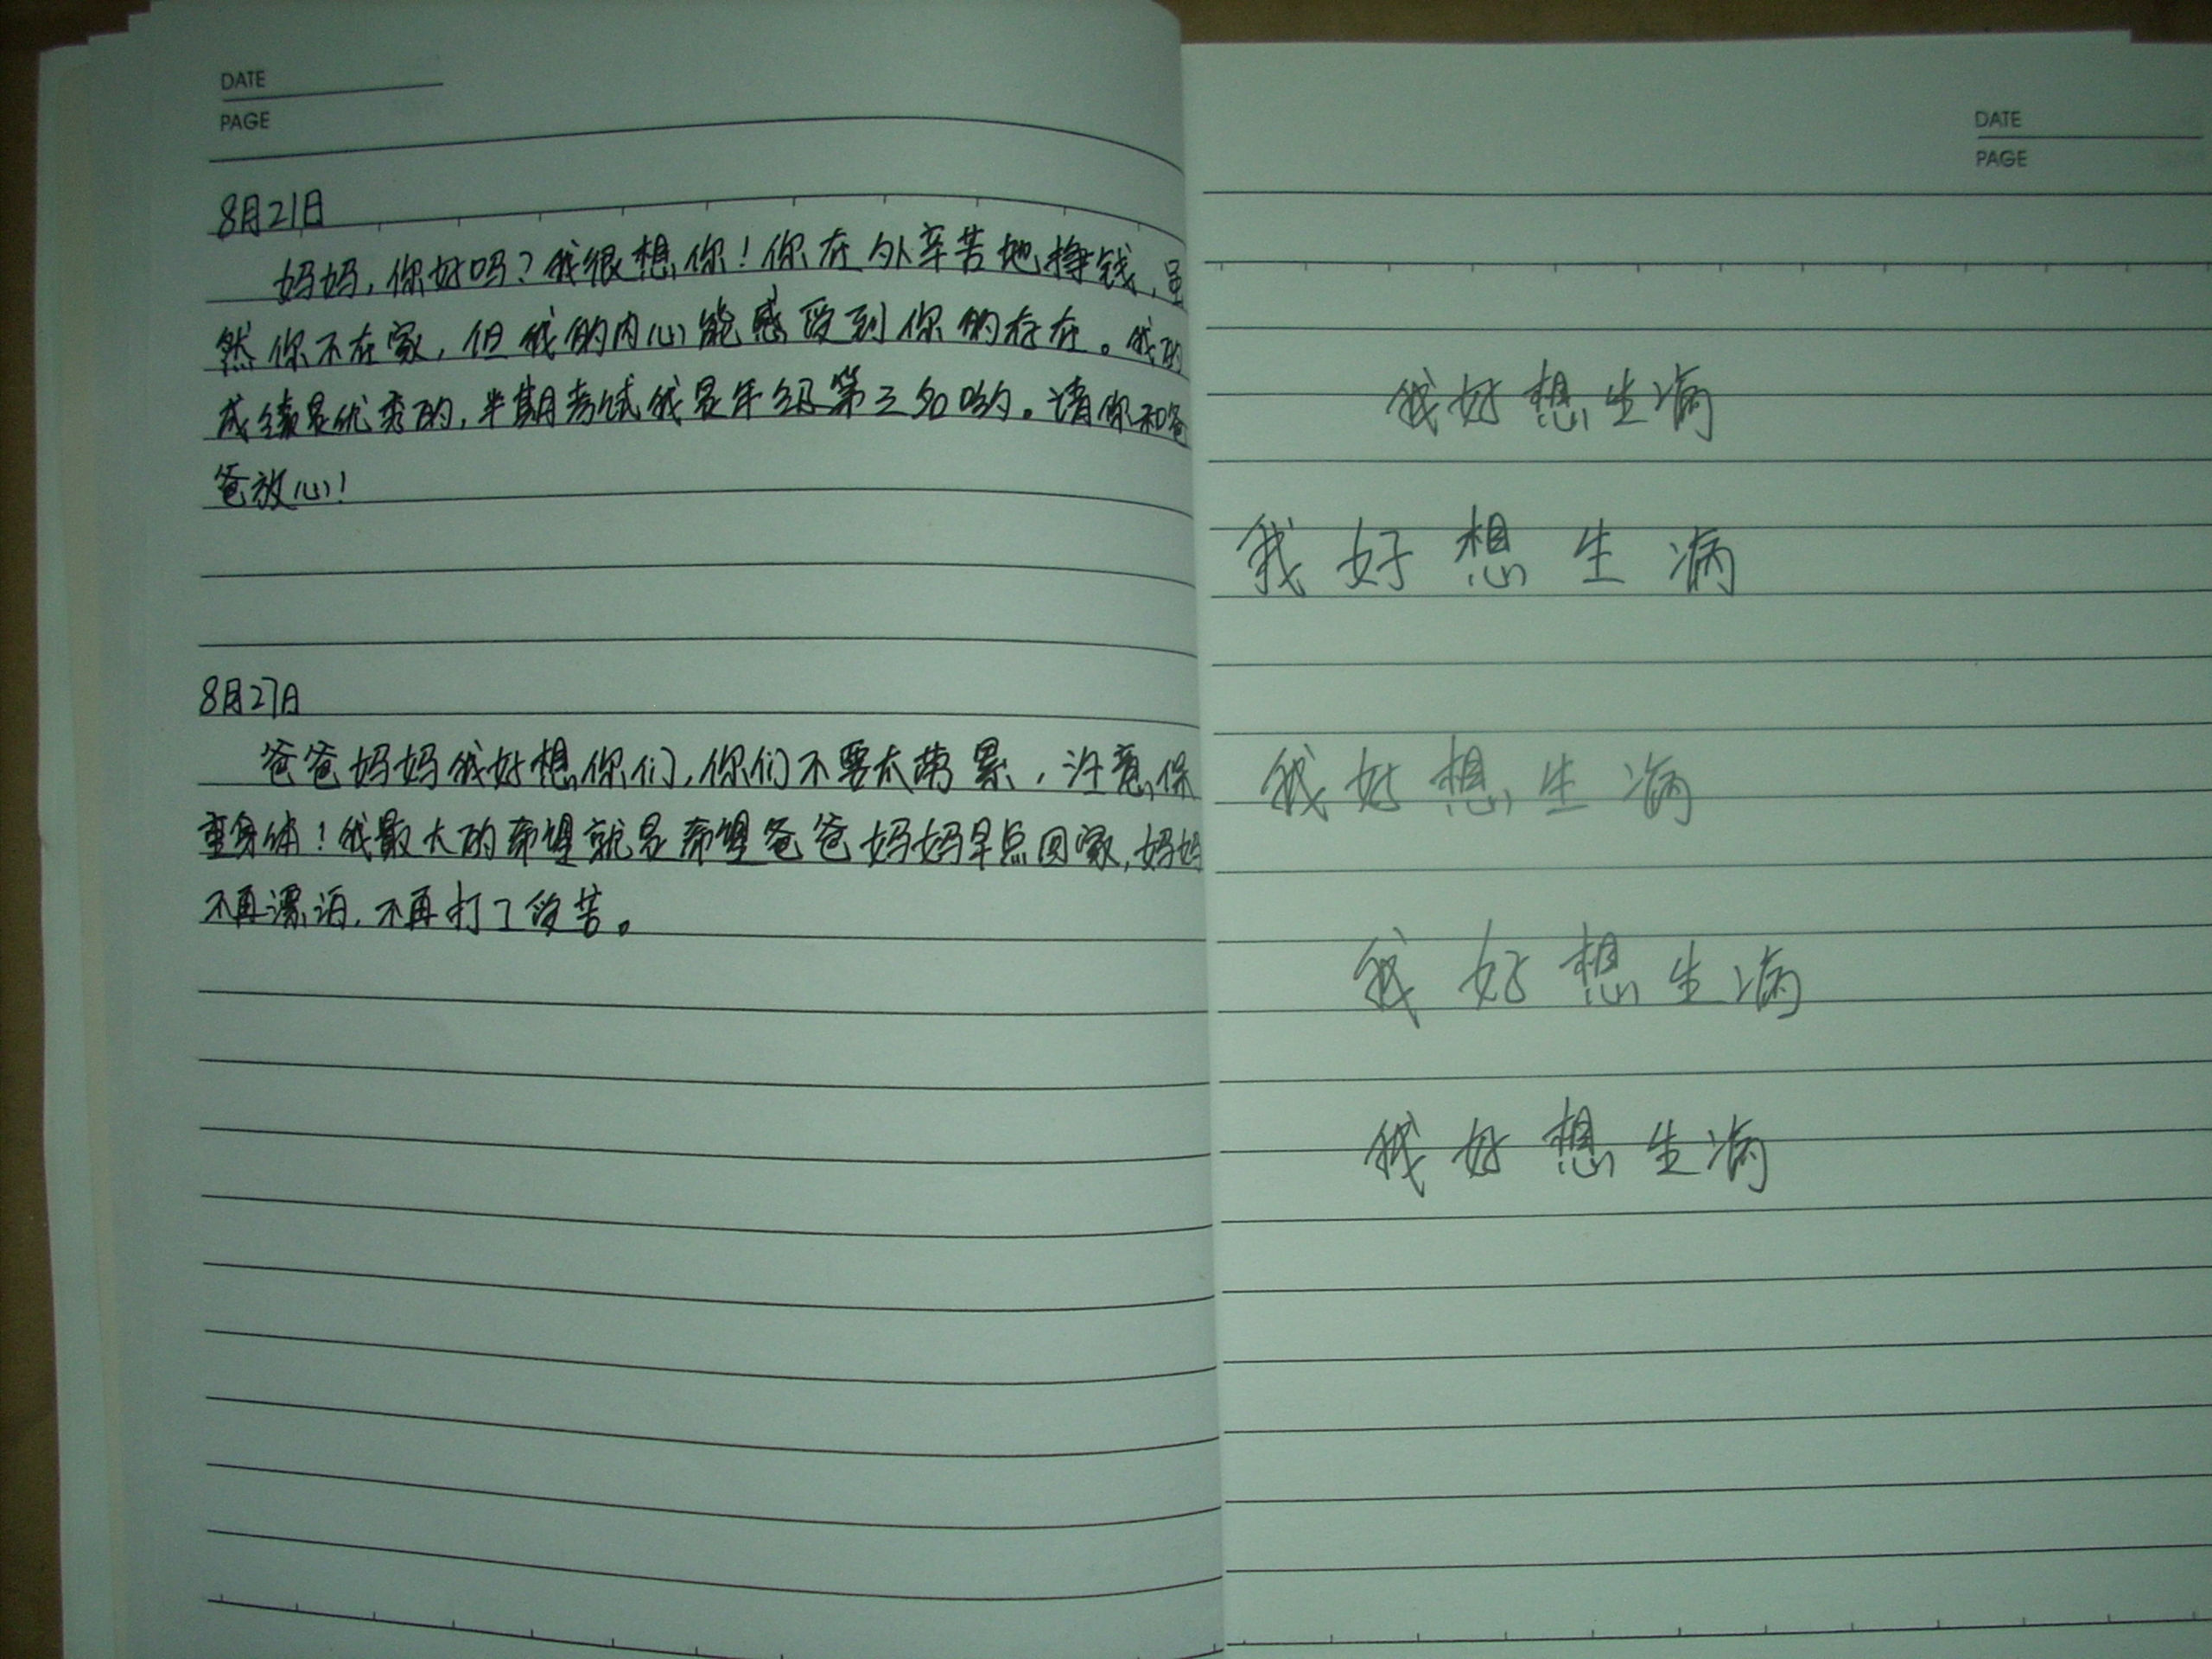 DATE
PAGE
8月21日
妈妈,你好吗?我很想你!你在外辛苦地挣钱,虽
然你不在家,但我的内心能感受到你的存在。我的
成绩是优秀的,半期考试我是年级第三名哟。请你和爸
爸放心!
8月27日
爸爸妈妈我好想你们,你们不要太劳累,注意保
重身体!我最大的希望就是希望爸爸妈妈早点回家,妈妈
不再漂泊,不再打工受苦。
DATE
PAGE
我好想生病
我好想生病
我好想生病
我好想生病
我好想生病